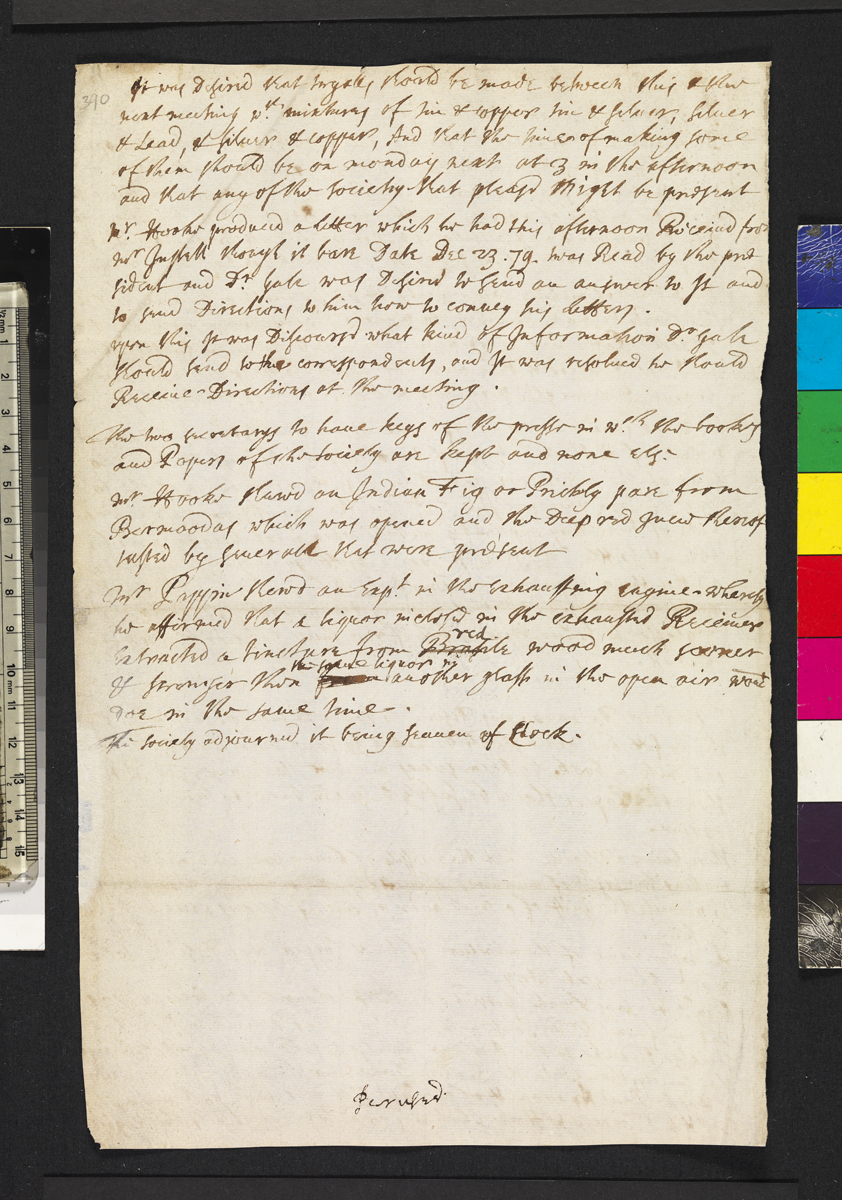 390
It was Desired that tryalls should be made between this & the
next meeting wth mixtures of tin & copper tin & silver, silver
& Lead, & silver & copper, And that the time of making some
of them should be on monday next at 3 in the afternoon
and that any of the society that pleasd might be present
mr. Hooke produced a letter which he had this afternoon Received from
mr Justell though it bare Date Dec 23. 79. was Read by the pre
sident and Dr. Gale was Desired to send an answer to It and
to send Directions to him how to convey his letters.
upon this It was Discoursd what kind of Information Dr. Gale
should send to the correspondents, and It was resolued he should
Receiue Directions at the meeting.
the two secretarys to haue keys of the presse in wch the books
and Papers of the society are kept and none else
mr. Hooke shewd an Indian Fig or Prickly pare from
Bermoodas which was opened and the Deep red Juce thereof
tasted by seuerall that were present
Mr Pappin shewd an Expt in the exhausting engine whereby
he affirmed that a liquor inclosed in the exhausted Receiuer
red
Extracted a tincture from Brasile wood much sooner
the same liquor in
& stronger then another glass in the open air would
doe in the same time.
The society adjourned it being seauen of Clock.
Perused